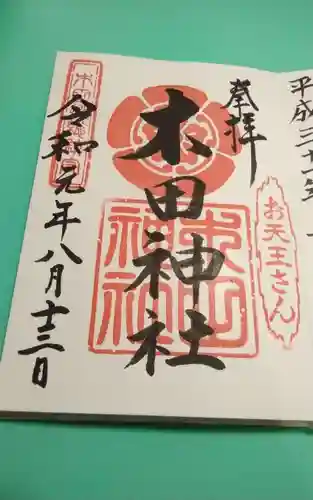 平成三十一年
奉拝
お天王さん
木田神社
木田神社
令和元年八月十三日